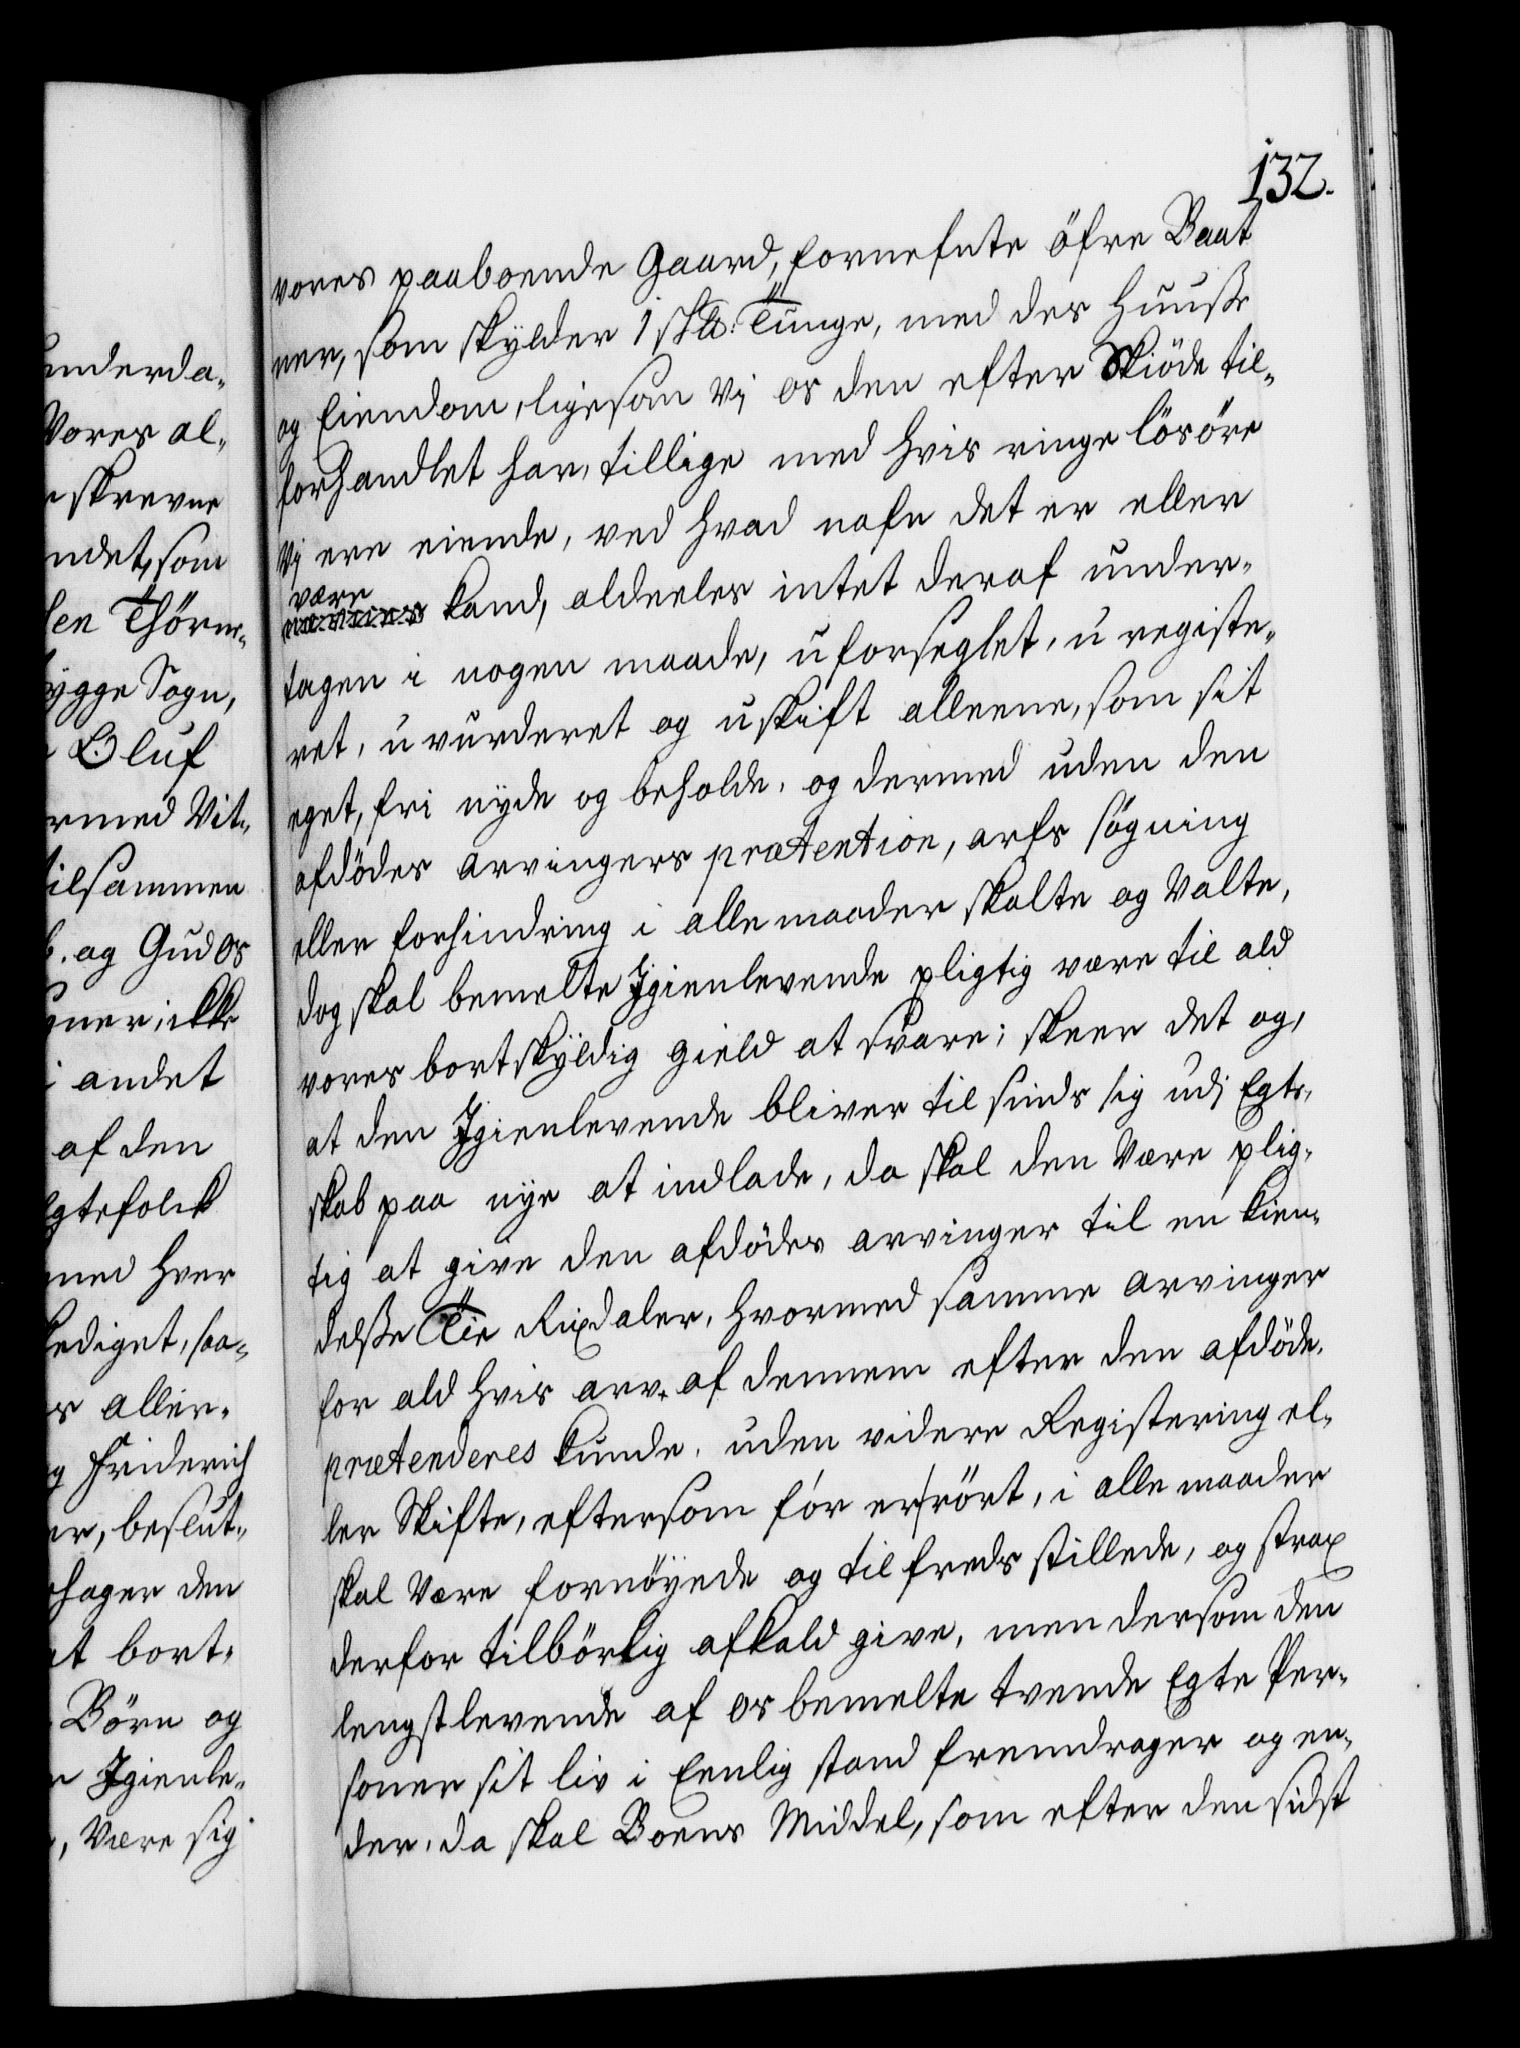 132.
vores paaboende Gaard, fornefnte öfre Baat
ner, som skylder 1 sk&#8468;: Tunge, med des Huuße
og Eiendom, ligesom Vj os den efter Skiöde til-
forhandlet har, tillige med hvis ringe lösöre
Vj ere eiende, ved hvad nafn det er eller
være
kand, aldeeles intet deraf under-
tagen i nogen maade, uforseglet, u registe-
ret, u vurderet og uskift alleene, som sit
eget, fri nyde og beholde, og dermed uden den
afdödes arvingers prætention, arfs søgning
eller forhindring i alle maader skalte og Valte,
dog skal bemelte Igienlevende pligtig være til ald
vores bortskyldig gield at svare; skeer det og,
at den Igienlevende bliver til sinds sig udj Egte-
skab paa nye at indlade, da skal den Være plig-
tig at give den afdödes arvinger til en kien-
delße Tie Rixdaler, hvormed samme arvinger
for ald hvis arv, af dennem efter den afdöde,
prætenderes kunde, uden videre Registering el-
ler Skifte, eftersom før er rört, i alle maader
skal Være fornöyede og tilfreds stillede, og strax
derfor tilbörlig afkald give, men dersom den
lengstlevende af os bemelte tvende Egte Per-
soner sit liv i Eenlig stand fremdrager og en-
der, da skal Boens Middel, som efter den sidst
underda-
Vores al-
skrevne
ndet, som
en Thörris-
ygge Sogn,
Oluf
rmed Vit-
tilsammen
og Gud os
gner, ikke
i andet
af den
gtefolk
med hver
lediget, saa-
s aller-
g Friderich
er, beslut-
hager den
at bort-
Børn og
n Igienle-
, Være sig